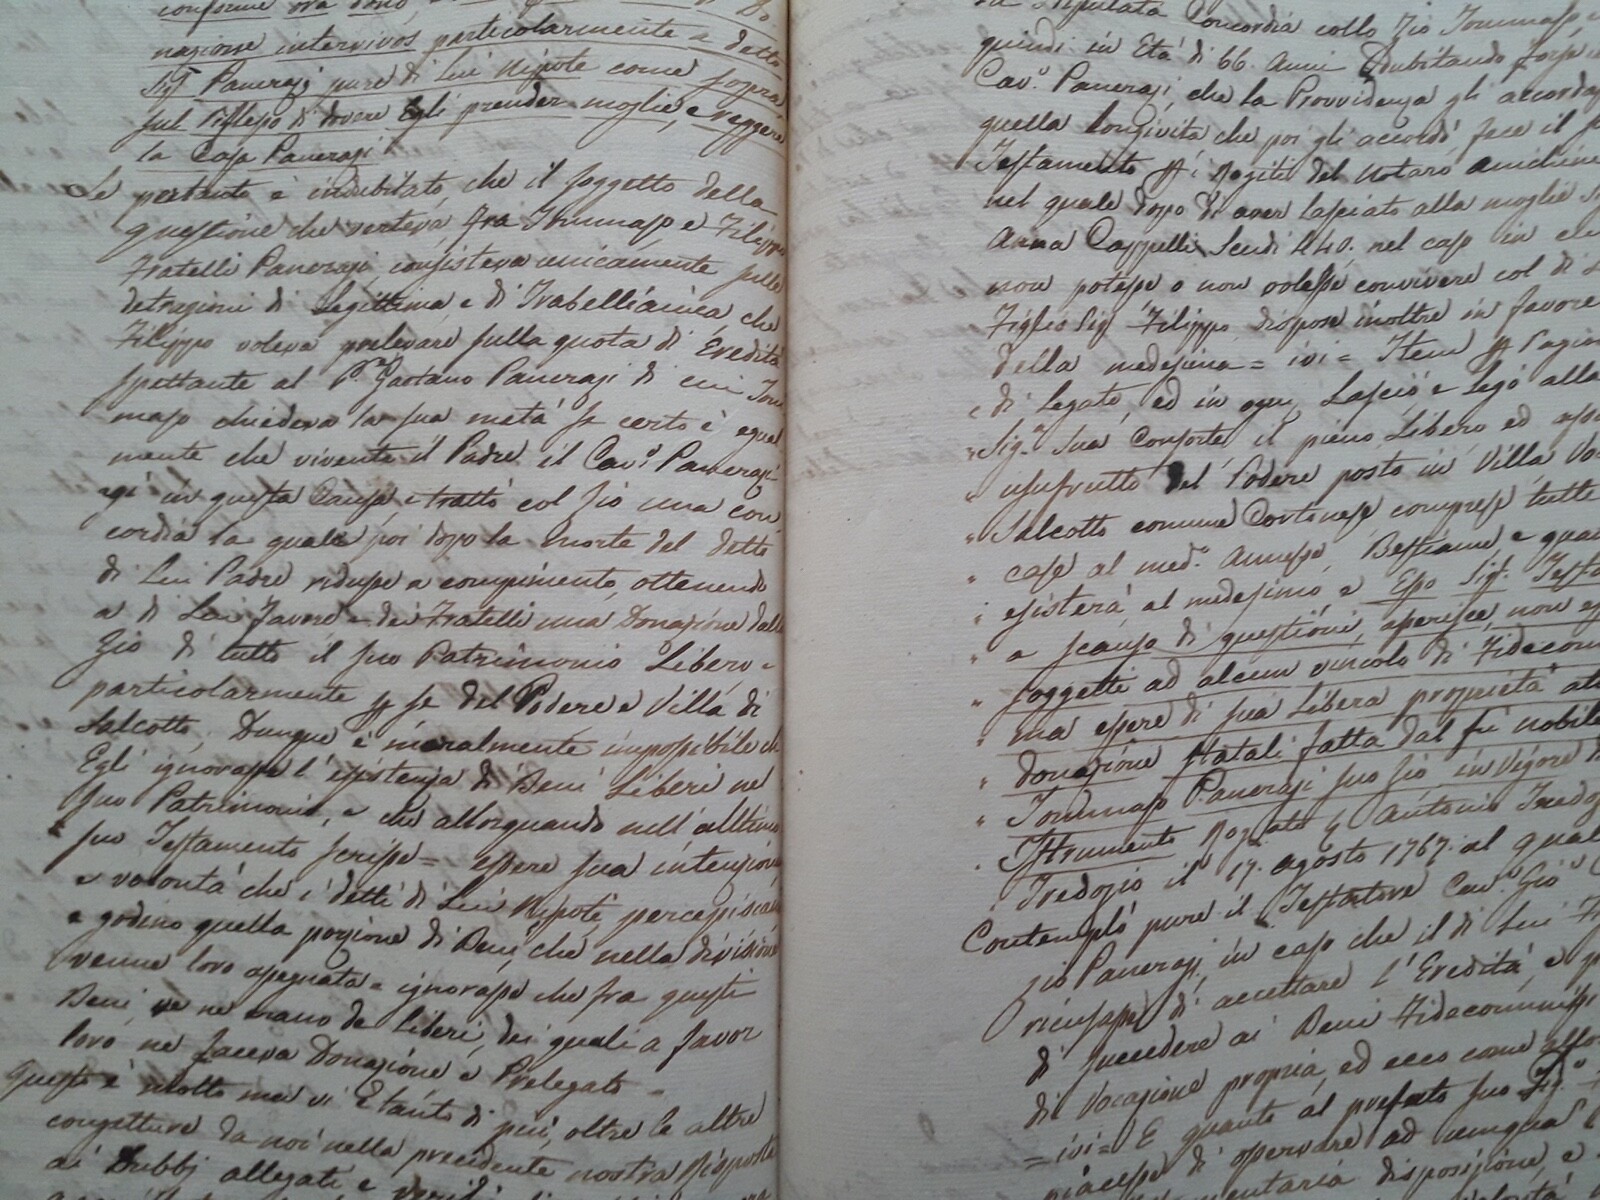 conforme ora dono,
nazione intervivos particolarmente a detto
Sig. Panerazj pure di Lui Nipote come sopra
sul riflesso di dovere Egli prender moglie, e reggere
la Casa Panerazj
Se pertanto è indubitato, che il soggetto della
questione che verteva fra Tommaso e Filippo
Fratelli Panerazj consisteva unicamente sulle
detrazioni di Legittima e di Trabellianica che
Filippo voleva prelevare sulla quota di Eredità
spettante al P. Gaetano Panerazj di cui Tom
maso chiedeva la sua metà se certo è egual
mente che vivente il Padre il Cav.r Panerazj
in questa Causa e trattò col Zio una con
cordia la quale poi dopo la morte del detto
di Lui Padre ridusse a compimento, ottenendo
a di Lui favore e dei Fratelli una Donazione dallo
Zio di tutto il suo Patrimonio Libero e
particolarmente del Podere e Villa di
Salcotto, Dunque è moralmente impossibile ch
Egli ignorasse l'esistenza di Beni Liberi nel
suo Patrimonio, e che allorquando nell'ultimo
suo Testamento scrisse = essere sua intenzione
e volontà che i detti di Lui Nipoti percepiscano
e godino quella porzione di Beni, che nella divisione
venne loro assegnata = ignorasse che fra questi
Beni, ve ne erano de Liberi, dei quali a favor
loro ne faceva Donazione e Prelegato =
Questo è molto ma vi è tanto di più, oltre le altre
congetture da noi nella precedente nostra Risposta
ai Dubbj allegate e
Stipulata Concordia collo Zio Tommaso
quindi in Età di 66. Anni dubitando forse
Cav.r Panerazj, che la Provvidenza gli accordasse
quella longività che poi gli accordò fece il
Testamento ai Rogiti del Notaro
nel quale dopo di aver lasciato alla moglie
Anna Cappelli Scudi 440. nel caso in cui
non potesse o non volesse convivere col di
Figlio Sig. Filippo, dispose inoltre in favore
della medesima = ivi = Item
e di Legato, ed in ogni Lasciò e Legò alla
Sig.a Sua Consorte il pieno Libero ed
usufrutto del Podere posto in Villa
Salcotto comune Cortonese compreso tutte
case al med.o Annesse, Bestiame e
esisterà al medesimo e Esso Sig.
a scanso di questioni, asserisce, non
soggetti ad alcun vincolo di
ma essere di sua Libera proprietà
donazione fatta dal fu nobile
Tommaso Panerazj suo Zio in vigore
Istrumento Rogato Antonio
Tredozio il 17. Agosto 1767. al
Contemplò pure il Testatore Cav.r Gio
Panerazj, in caso che il di Lui
ricusasse di accettare l'Eredità, e
di succedere ai Beni
di Vocazione propria, ed ecco come
= ivi = E quanto al prefato suo Fig.o
piacesse di osservare ad
disposizione, e